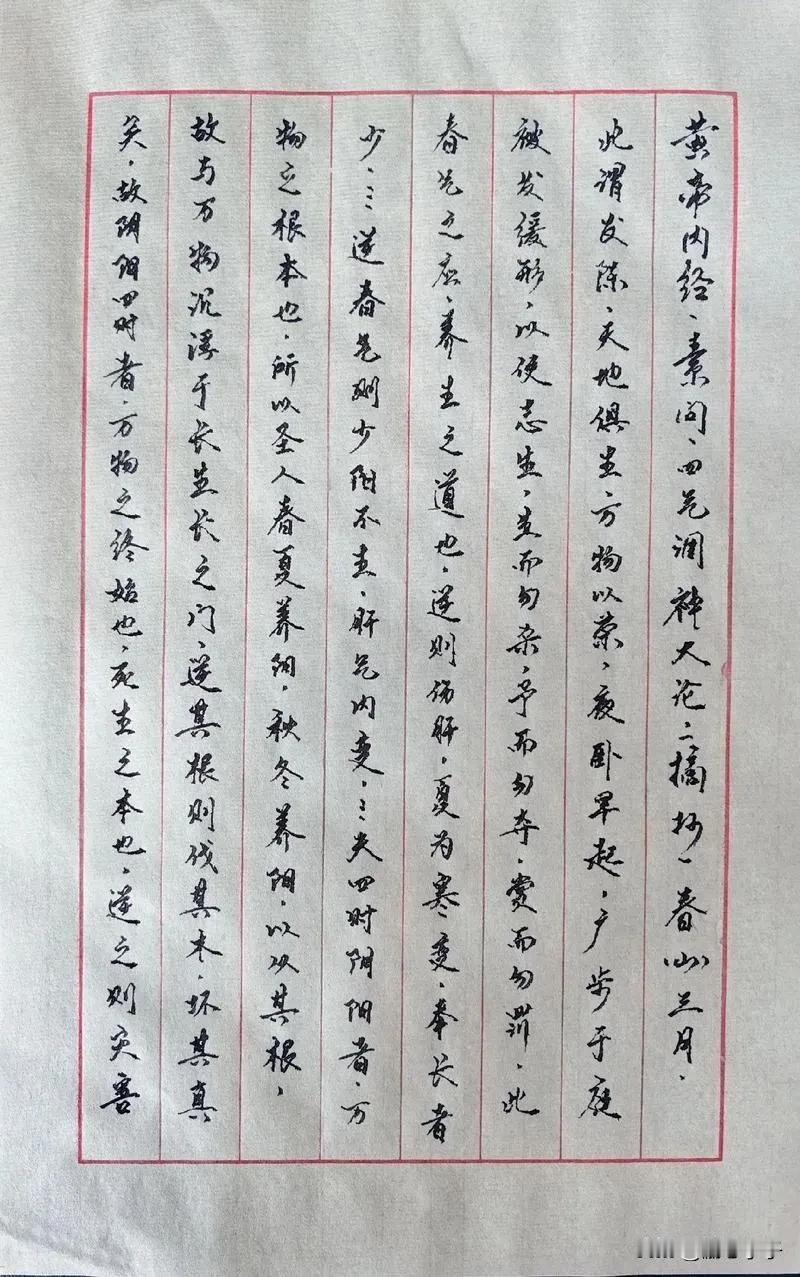 黄帝内经·素问·四气调神大论：摘抄一春山三月，
此谓发陈，天地俱生，万物以荣，夜卧早起，广步于庭
被发缓形，以使志生，生而勿杀，予而勿夺，赏而勿罚，此
春气之应，养生之道也，逆则伤肝，夏为寒变，奉长者
少，…逆春气则少阳不生，肝气内变，…夫四时阴阳者，万
物之根本也，所以圣人春夏养阳，秋冬养阴，以从其根，
故与万物沉浮于长生长之门，逆其根则伐其本，坏其真
矣，故阴阳四时者，万物之终始也，死生之本也，逆之则灾害